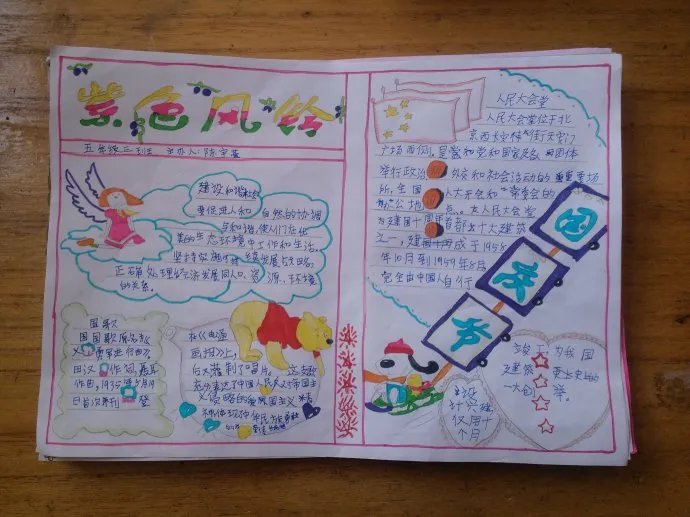 紫色风铃
五年级三班 主办人：陈
建设和谐社会
要促进人和 自然的协调
与和谐，使人们在优
美的生态环境中工作和生活。
坚持实施可持续发展战略，
正确处理经济发展同人口、资源、环境
的关系。
国歌
国国歌原名《
义勇军进行曲》，
田汉 作词，聂耳
作曲，1935年5月9
日首次兼刊 登
在《电通
画报》上，
灌制了唱片。
充分表达了中国人民反对帝国主
义侵略的爱国主义精
神，体现中华民族勇敢
人民大会堂
人民大会堂位于北
京西长安街 天安门
广场西侧，是党和国家 团体
举行政治 外交和社会活动的重要场
所，全国 人大开会和 常委会的
办公地 点。人民大会堂
为建国十周年首都十大建筑
之一，建 成于1958
年10月到1959年8月，
完全由中国人自行
国庆节
设
计兴建
仅用十
个月
竣工，为我国
建筑 史上的
一大创 举。